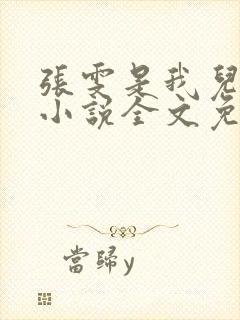 張雯是我兒
小說全文免
當歸y